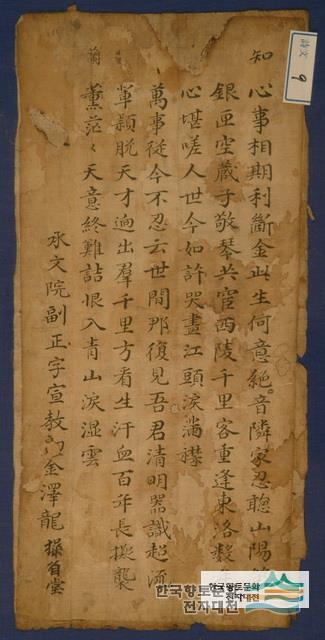 詩文
9
知心事相期利斷金此生何意絶音隣家忍聽山陽
銀匣空藏子敬琴共宦西陵千里客重逢東洛數
心堪嗟人世今如許哭盡江頭淚滿襟
萬事從今不忍云世間那復見吾君清明器識超流
輩穎脫天才逈出羣千里方看生汗血百年長擬襲
蘭薰茫〻天意終難詰恨入青山淚濕雲
承文院副正字宣教郎金澤龍 操省堂
한국향토문화
전자대전
한국향토문화
전자대전